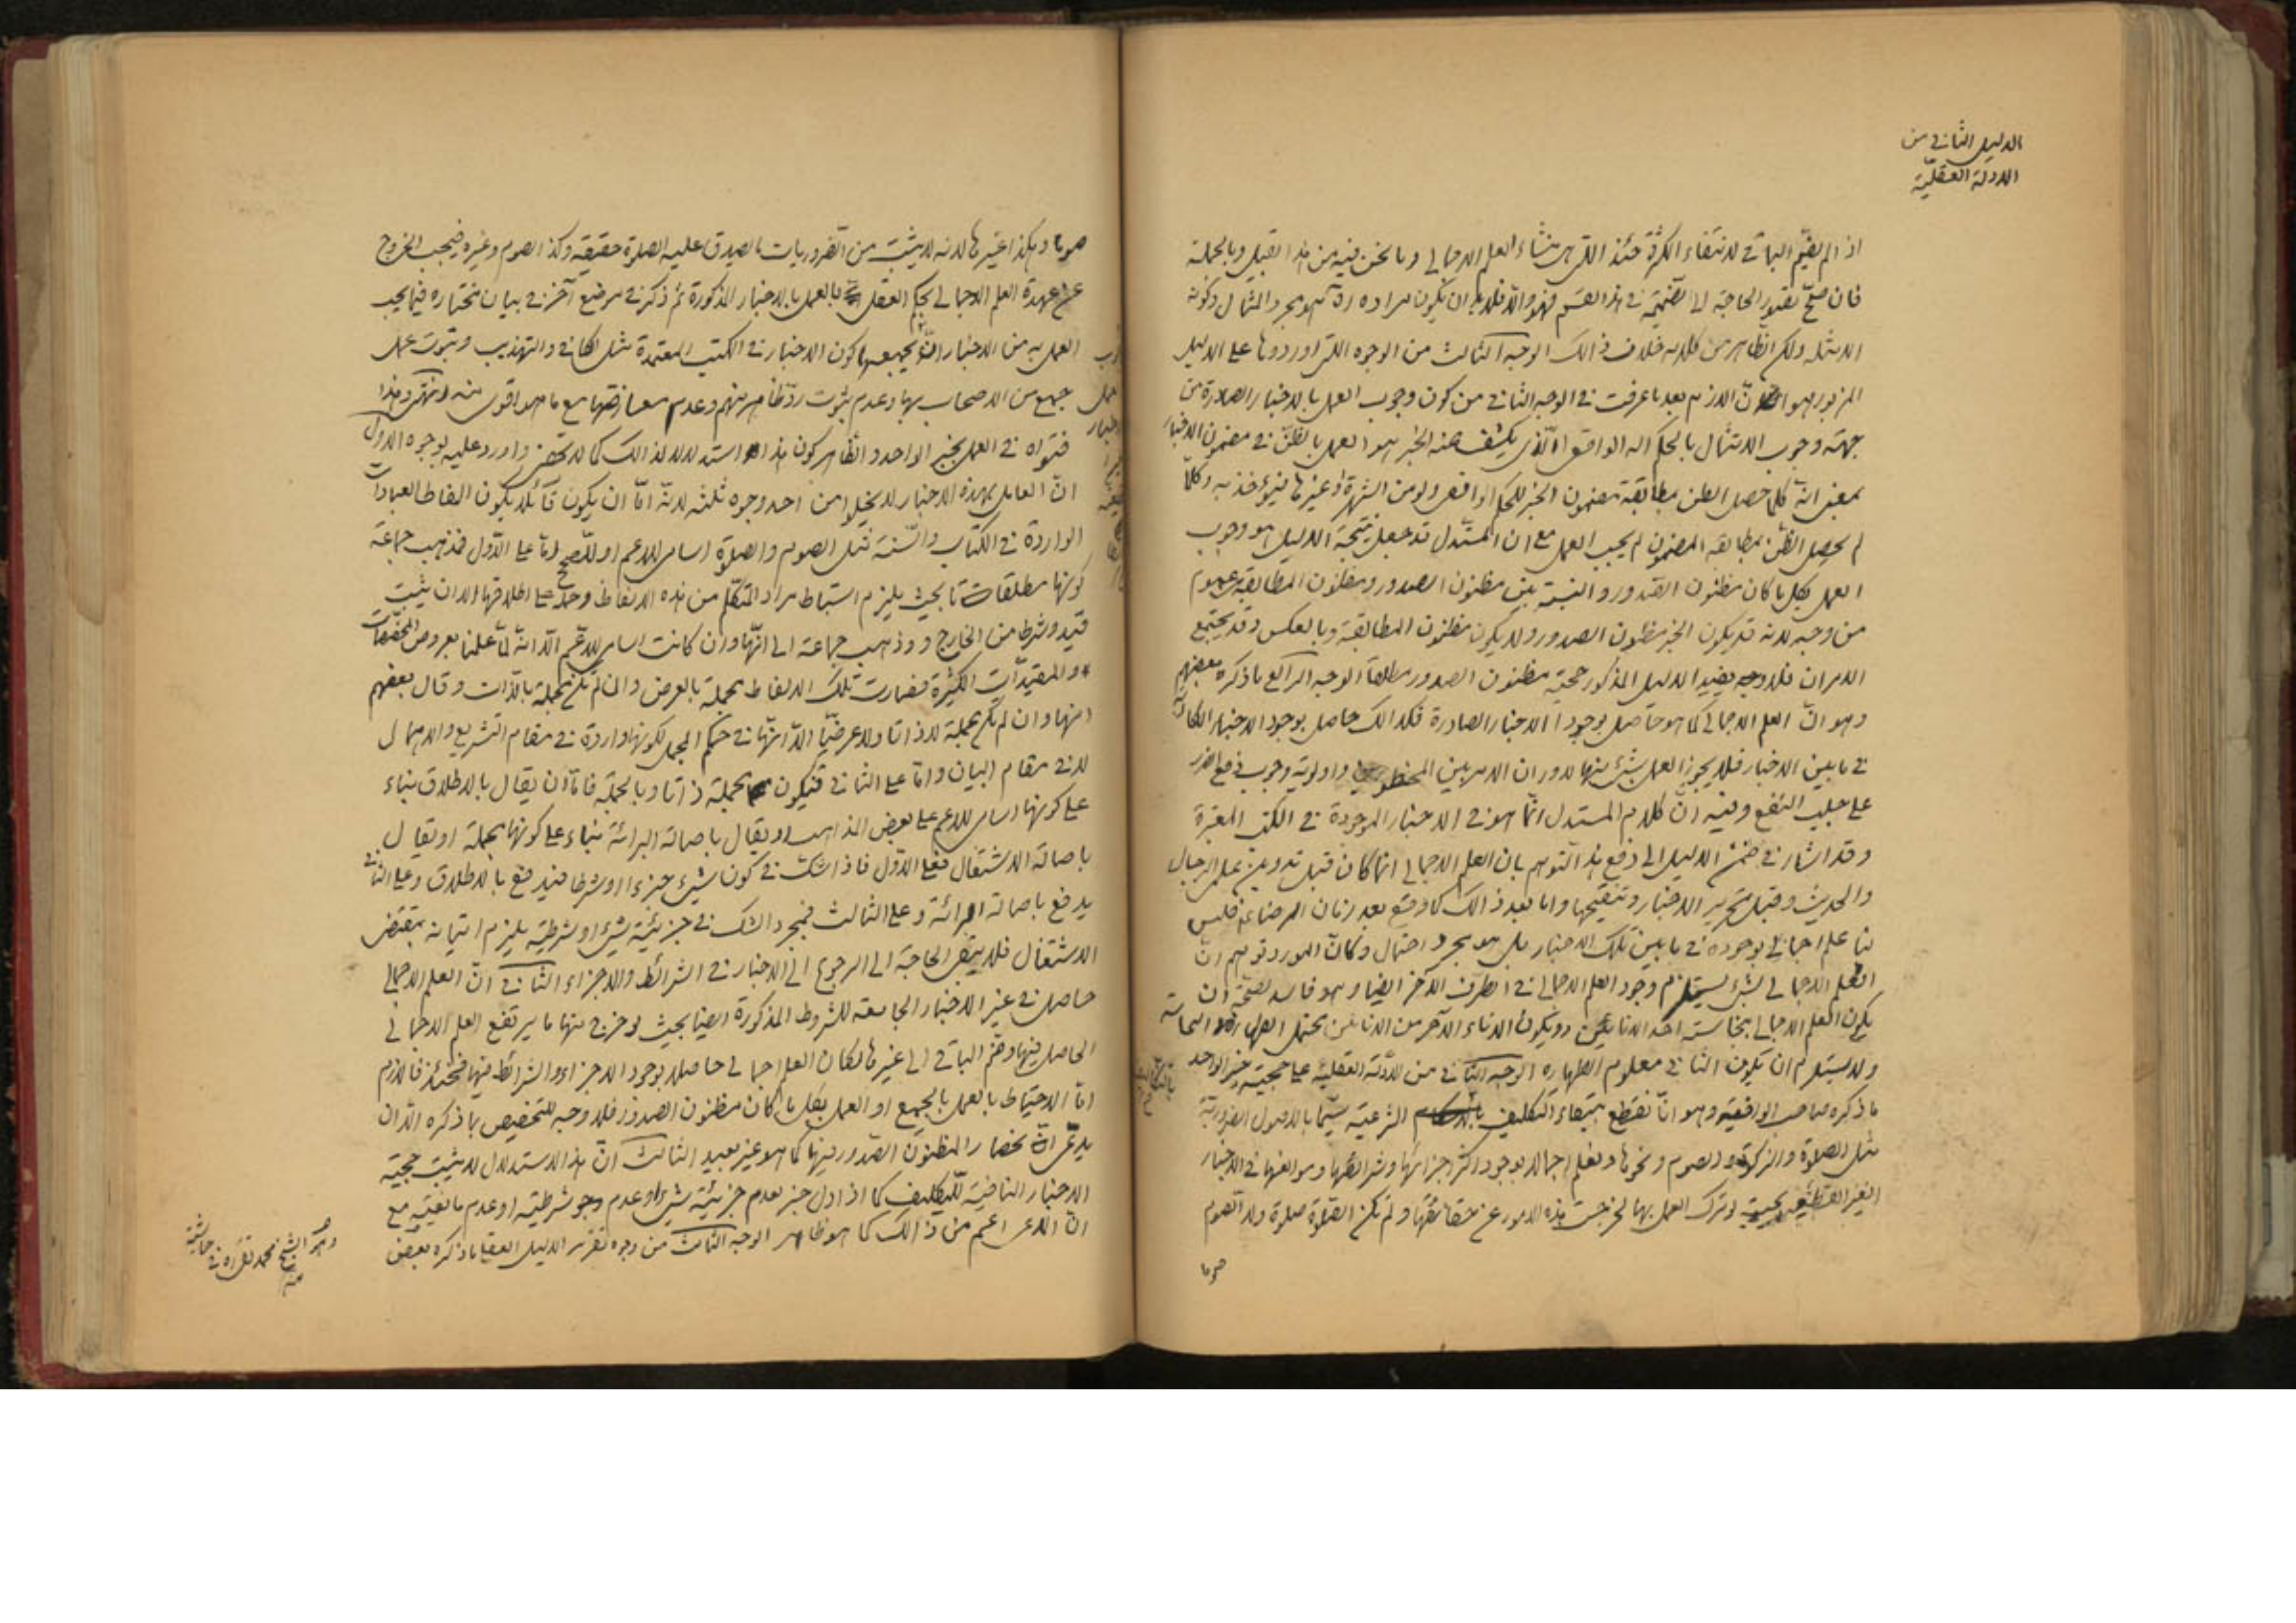 الدليل الثاني من
الادلة العقلية
اذ الم يضم الباقي لانتفاء الكثرة حينئذ التي هي منشاء العلم الاجمالي وما نحن فيه من هذا القبيل وبالجملة
فان صح تصوير الحاجة الى الضميمة في هذا القسم فهو والا فلابد ان يكون مراده ره هو مجرد المثال وكونه
ولكن الظاهر من كلامه خلاف ذالك الوجه الثالث من الوجوه التي اوردوها على الدليل
المزبور هو ان اللازم بعد ما عرفت في الوجه الثاني من كون وجوب العمل بالاخبار الصادرة من
جهة وجوب الامتثال بالحكم الواقعي الذي يكشف عنه الخبر هو العمل بالظن في مضمون الاخبار
بمعنى انه كلما حصل الظن بمطابقة مضمون الخبر للحكم الواقعي ولو من الشهرة او غيرها فيؤخذ به وكلما
لم يحصل الظن بمطابقة المضمون لم يجب العمل مع ان المستدل قد جعل نتيجة الدليل هو وجوب
العمل بكل ما كان مظنون الصدور والنسبة بين مظنون الصدور ومظنون المطابقة عموم
من وجه لانه قد يكون الخبر مظنون الصدور ولا يكون مظنون المطابقة وبالعكس وقد يجتمع
الامران فلا وجه يفيد الدليل المذكور حجية مظنون الصدور مطلقا الوجه الرابع ما ذكره بعضهم
وهو ان العلم الاجمالي كما هو حاصل بوجود الاخبار الصادرة فكذالك حاصل بوجود الاخبار الكاذبة
في ما بين الاخبار فلا يجوز العمل بشئ منها لدوران الامر بين المحظورين واولوية وجوب دفع الضرر
على جلب النفع وفيه ان كلام المستدل انما هو في الاخبار الموجودة في الكتب المعتبرة
وقد اشار في ضمن الدليل الى دفع هذا التوهم بان العلم الاجمالي انما كان قبل تدوين علم الرجال
والحديث وقبل تحرير الاخبار وتنقيحها واما بعد ذالك كما وقع بعد زمان الرضا ع فليس
لنا علم اجمالي بوجوده في ما بين تلك الاخبار بل هو مجرد احتمال وكان المورد توهم ان
العلم الاجمالي بشئ يستلزم وجود العلم الاجمالي في الطرف الاخر ايضا وهو فاسد لصحة ان
يكون العلم الاجمالي بنجاسة احد الانائين ويكون الاناء الآخر من الانائين محتمل الطهارة والنجاسة
ولا يستلزم ان يكون الثاني معلوم الطهارة الوجه الثاني من الادلة العقلية على حجية خبر الواحد
ما ذكره صاحب الوافية وهو انا نقطع ببقاء التكليف الشرعية سيما بالاصول الضرورية
مثل الصلوة والزكوة والصوم ونحوها ونعلم اجمالا بوجود اكثر اجزائها وشرائطها وموانعها في الاخبار
الغير القطعية بحيث لو ترك العمل بها لخرجت هذه الامور عن حقائقها ولم تكن الصلوة صلوة ولا الصوم
صوما
صوما وهكذا غيرها لانه لا يثبت من الضروريات ما يصدق عليه الصلوة حقيقة وكذا الصوم وغيره فيجب الخروج
عن عهدة العلم الاجمالي بحكم العقل بالعمل بالاخبار المذكورة ثم ذكر في موضع آخر في بيان مختاره فيما يجب
العمل به من الاخبار كون الاخبار في الكتب المعتمدة مثل الكافي والتهذيب وثبوت عمل
جمع من الاصحاب بها وعدم ثبوت رد ظاهر منهم وعدم معارضتها مع ما هو اقوى منه انتهى وهذا
فتواه في العمل بخبر الواحد والظاهر كون هذا استدلالا لذالك كما لا يخفى واورد عليه بوجوه الاول
ان العامل بهذه الاخبار لا يخلوا من احد وجوه ثلثة لانه اما ان يكون قائلا بكون الفاظ العبادات
الواردة في الكتاب والسنة مثل الصوم والصلوة اسامي للاعم او للصحيح اما على الاول فذهب جماعة
كونها مطلقات بحيث يلزم استنباط مراد المتكلم من هذه الالفاظ وحملها على اطلاقها الا ان يثبت
قيد وشرط من الخارج وذهب جماعة الى انها وان كانت اسامي للاعم الا انه لما علمنا بعروض المخصصات
والمقيدات الكثيرة فصارت تلك الالفاظ مجملة بالعرض وان لم تكن مجملة بالذات وقال بعضهم
انها وان لم تكن مجملة لا ذاتا ولا عرضيا الا انها في حكم المجمل لكونها واردة في مقام التشريع والاهمال
لا في مقام البيان واما على الثاني فيكون مجملة ذاتا وبالجملة فاما ان يقال بالاطلاق بناء
على كونها اسامي للاعم على بعض المذاهب او يقال باصالة البرائة بناء على كونها مجملة او يقال
باصالة الاشتغال فعلى الاول فاذا شك في كون شئ جزءا او شرطا فيدفع بالاطلاق وعلى الثاني
يدفع باصالة البرائة وعلى الثالث فبمجرد الشك في جزئية شئ او شرطيته يلزم اتيانه بمقتضى
الاشتغال فلا يبقى الحاجة الى الرجوع الى الاخبار في الشرائط والاجزاء الثاني ان العلم الاجمالي
حاصل في غير الاخبار الجامعة للشروط المذكورة ايضا بحيث لو خرج منها ما يرتفع العلم الاجمالي
الحاصل فيها وضم الباقي الى غيرها لكان العلم اجمالي حاصلا بوجود الاجزاء والشرائط فيها فحينئذ فاللازم
اما الاحتياط بالعمل بالجميع او العمل بكل ما كان مظنون الصدور فلا وجه للتخصيص بما ذكره الا ان
يدعى انحصار المظنون الصدور فيها كما هو غير بعيد الثالث ان هذا الاستدلال لا يثبت حجية
الاخبار النافية للتكليف كما اذا دل خبر بعدم جزئية شئ او عدم شرطيته او عدم مانعيته مع
ان المدعى اعم من ذالك كما هو ظاهر الوجه الثالث من وجوه تقرير الدليل العقلي ما ذكره بعض
وهو الشيخ محمد تقي ره في حاشيته
منه